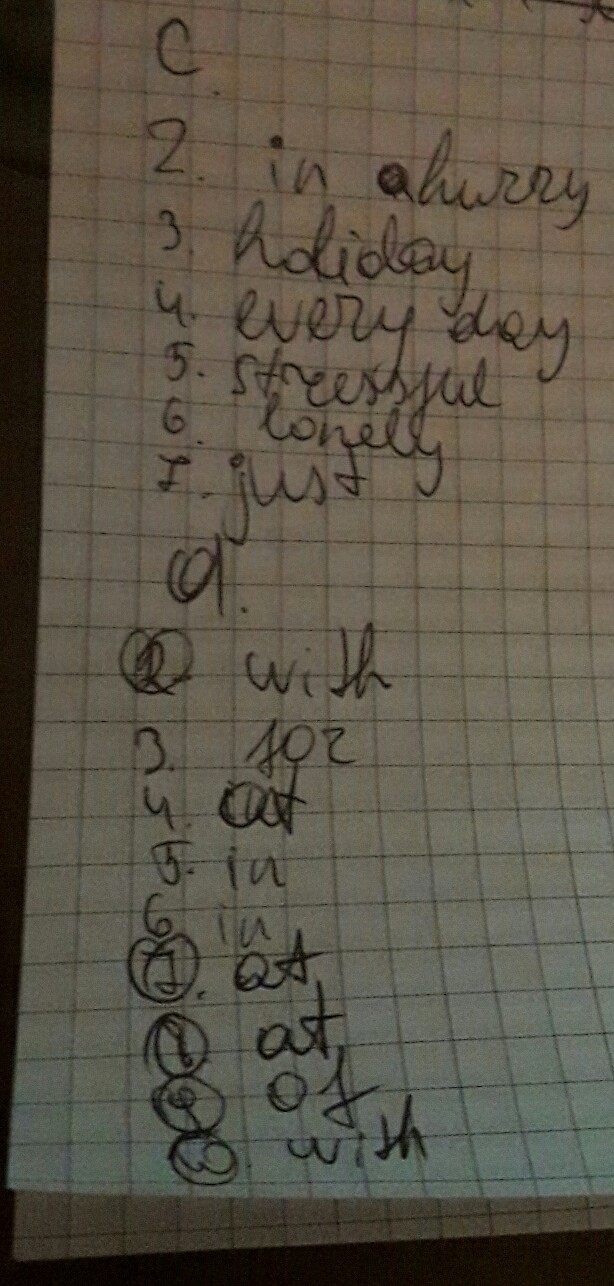 C.
2. in a hurry
3. holiday
4. every day
5. stressful
6. lonely
7. just
d.
2 with
3. for
4. at
5. in
6 in
7. at
8 at
9 of
10. with